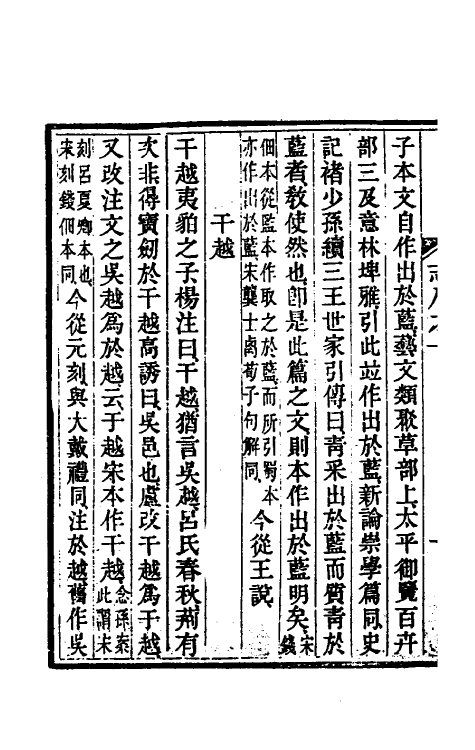 子本文自作出於藍藝文類聚草部上太平御覽百卉
部三及意林埤雅引此竝作出於藍新論崇學篇同史
記褚少孫續三王世家引傳曰靑采出於藍而質靑於
藍者敎使然也卽是此篇之文則本作出於藍明矣宋錢
佃本從監本作取之於藍而所引蜀本亦作出於藍宋龔士卨荀子句解同今從王說
干越
干越夷貉之子楊注曰干越猶言吳越呂氏春秋荊有
次非得寶劒於干越高誘曰吳邑也盧改干越爲于越
又改注文之吳越爲於越云于越宋本作干越念孫案此謂宋
刻呂夏卿本也宋刻錢佃本同今從元刻與大戴禮同注於越舊作吳